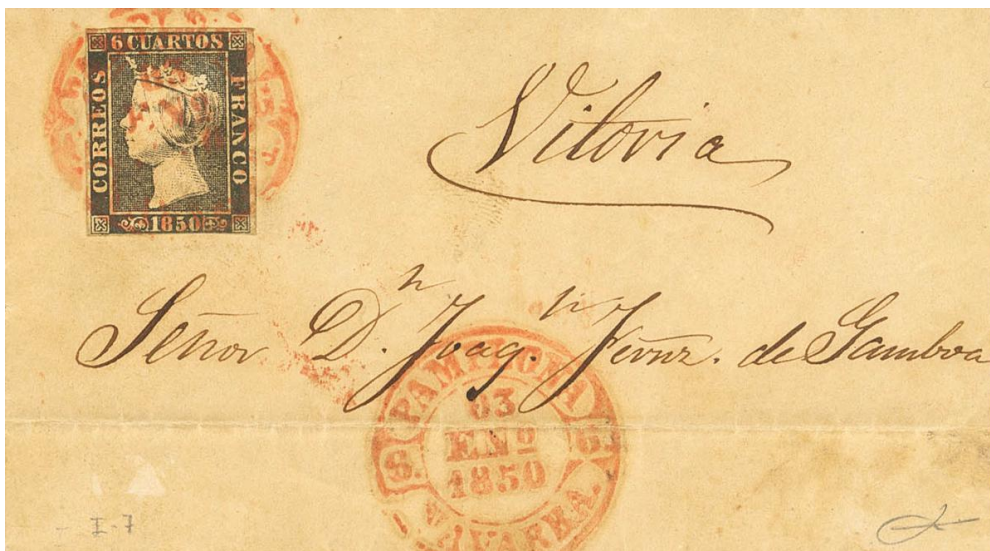 6 CUARTOS
CORREOS
FRANCO
1850
Vitoria
Señor D.n Joaq.n Fernz. de Gamboa
PAMPLONA
S. 03 G.
ENº
1850
NAVARRA.
- I-7